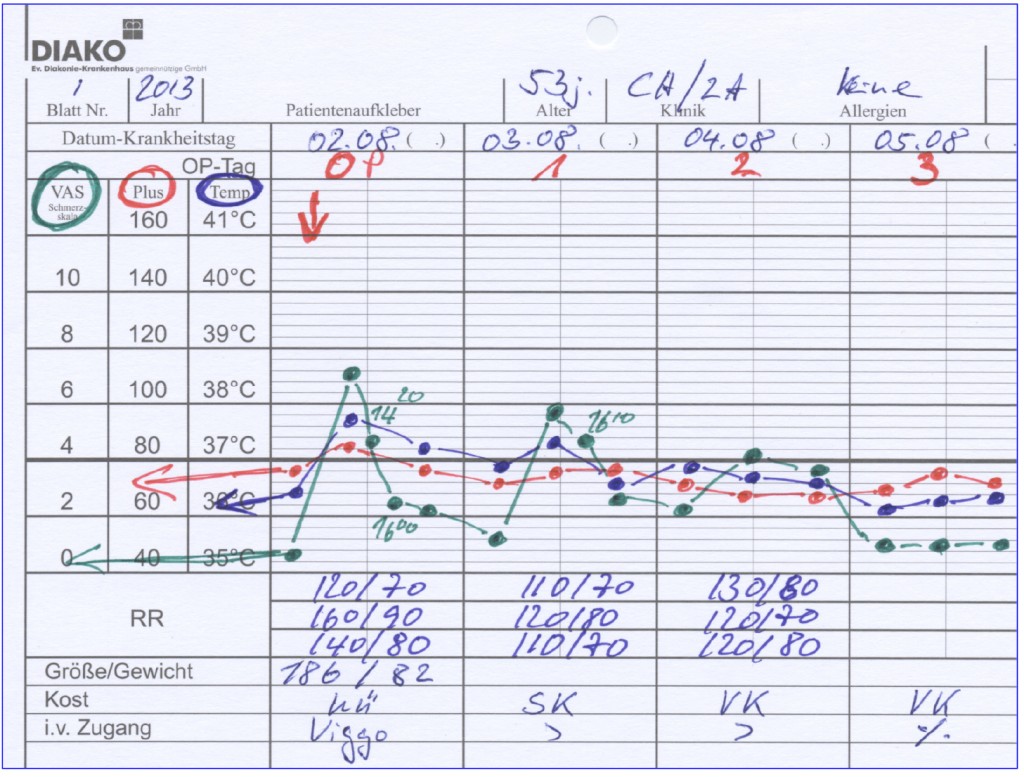 DIAKO
Ev. Diakonie-Krankenhaus gemeinnützige GmbH
1 2013 53j. CH/2A keine
Blatt Nr. Jahr Patientenaufkleber Alter Klinik Allergien
Datum-Krankheitstag 02.08. ( . ) 03.08. ( . ) 04.08 ( . ) 05.08 ( .
OP-Tag OP 1 2 3
VAS Plus Temp
Schmerz-
skala
160 41°C
10 140 40°C
8 120 39°C
6 100 38°C
14 20
16 10
4 80 37°C
2 60 36°C
16 00
0 40 35°C
120/70 110/70 130/80
RR 160/90 120/80 120/70
140/80 110/70 120/80
Größe/Gewicht 186 / 82
Kost nü SK VK VK
i.v. Zugang Viggo > > %